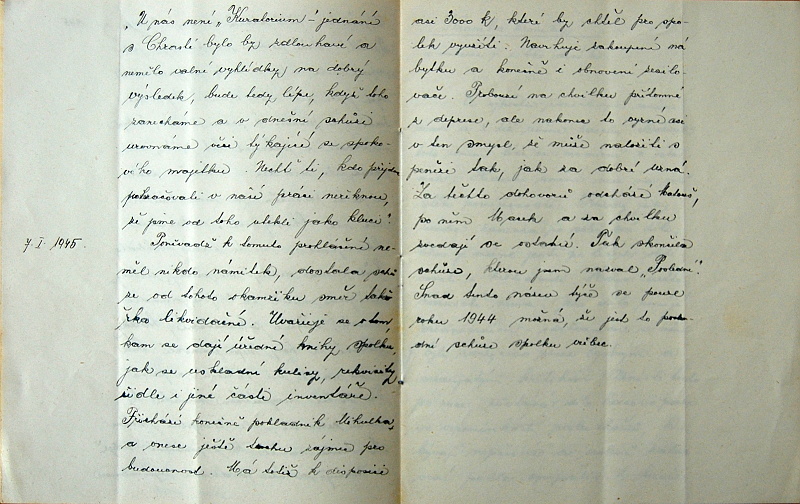 „U nás není „Kuratorium"- jednání
s Chrastí bylo by zdlouhavé a
nemělo valné vyhlídky na dobrý
výsledek, bude tedy lépe, když toho
zanecháme a v dnešní schůzi
urovnáme věci týkající se spolko-
vého majetku. Nechť ti, kdo přijdou
pokračovati v naší práci neřeknou,
že jsme od toho utekli jako kluci".
7. I. 1945.
Poněvadž k tomuto prohlášení ne-
měl nikdo námitek, dostala schů-
ze od tohoto okamžiku směr takř
ka likvidační. Uvažuje se o tom
kam se dají úřední knihy spolku,
jak se uskladní kulisy, rekvisity
židle i jiné části inventáře.
Přichází konečně pokladník Mikulka,
a vnese ještě trochu zájmu pro
budoucnost. Má totiž k disposici
asi 3000 K, které by chtěl pro spo-
lek využíti. Navrhuje zakoupení ná
bytku a konečně i obnovení zesilo-
vače. Probouzí na chvilku přítomné
z deprese, ale nakonec to vyzní asi
v ten smysl, že může naložiti s
penězi tak, jak za dobré uzná.
Za těchto dohovorů odchází Matouš,
po něm Macek a za chvilku
zvedají se ostatní. Tak skončila
schůze, kterou jsem nazval „Poslední".
Snad tento název týče se pouze
roku 1944 možná, že jest to posle-
dní schůze spolku vůbec.